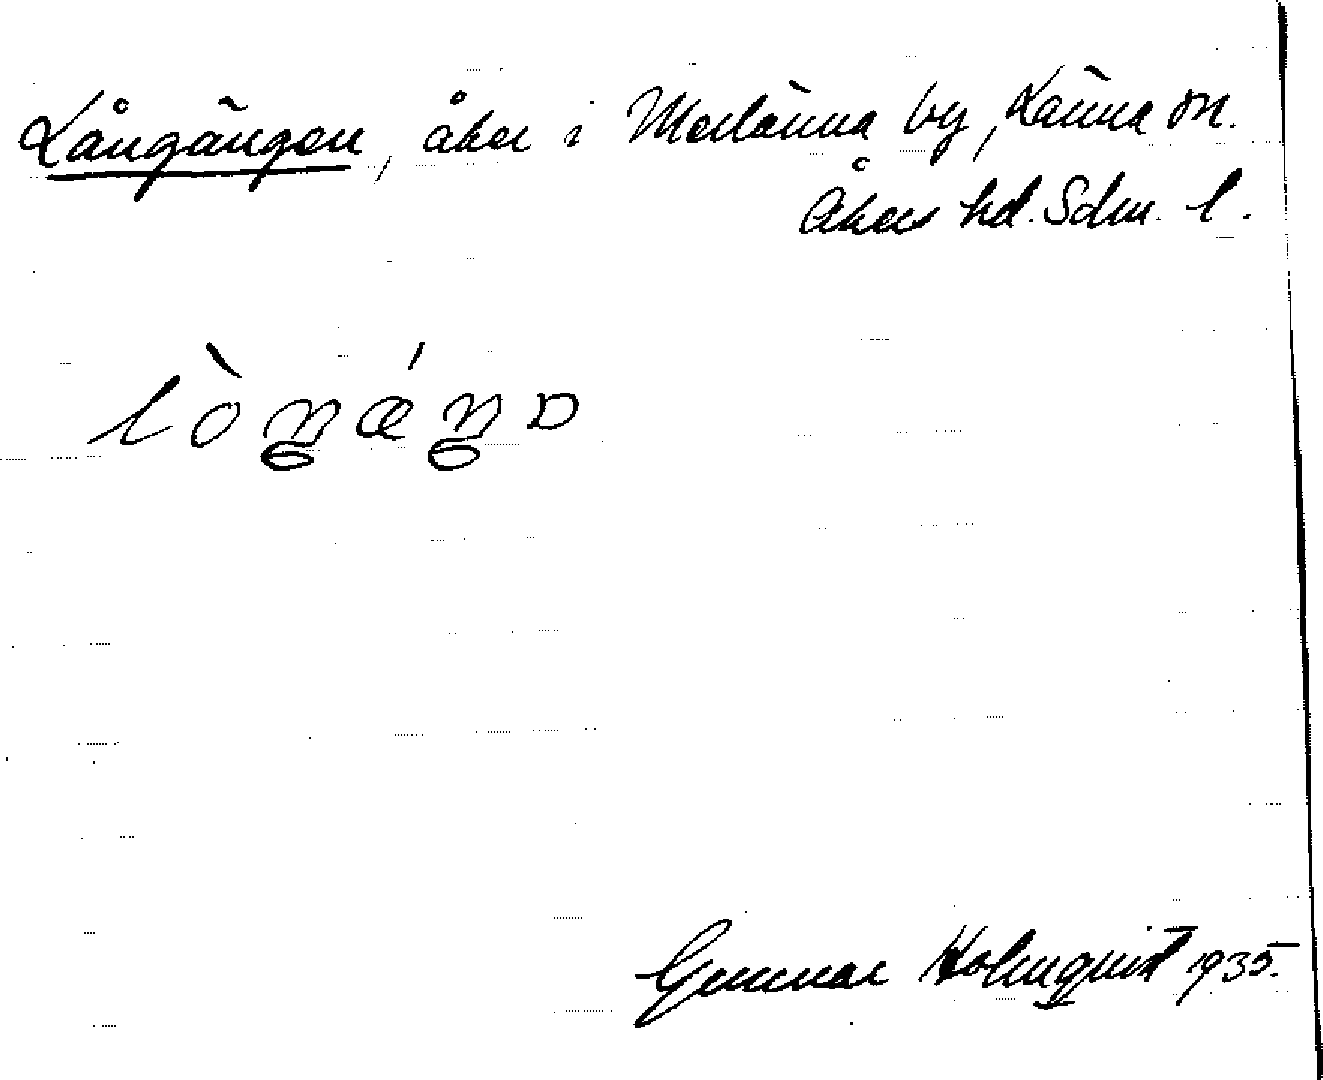 Långängen, åker i Merlänna by, Länna sn.
Åkers hd. Sdm. l.
lòŋǽŋɒ
Gunnar Holmquist 1935.